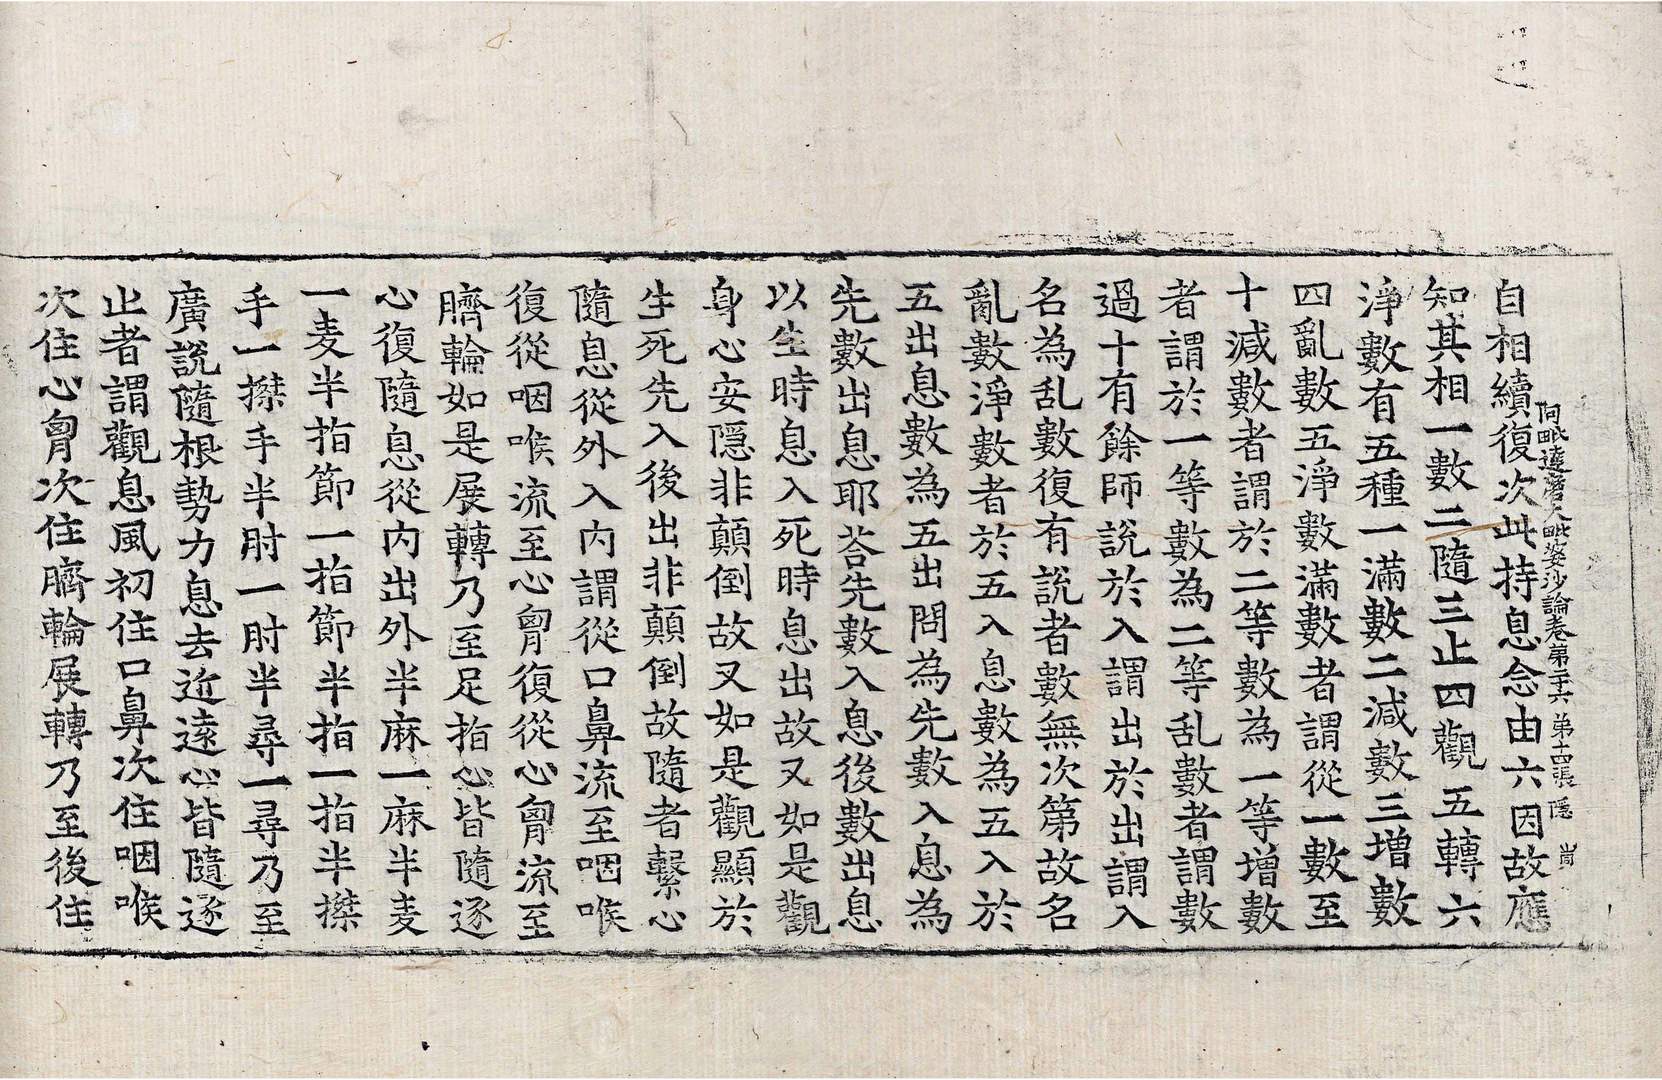 阿毗達磨大毗婆沙論卷第二十六 第十四張 隱 崗
自相續復次此持息念由六因故應
知其相一數二隨三止四觀五轉六
淨數有五種一滿數二減數三增數
四亂數五淨數滿數者謂從一數至
十減數者謂於二等數為一等增數
者謂於一等數為二等乱數者謂數
過十有餘師說於入謂出於出謂入
名為乱數復有說者數無次第故名
亂數淨數者於五入息數為五入於
五出息數為五出問為先數入息為
先數出息耶荅先數入息後數出息
以生時息入死時息出故又如是觀
身心安隱非顛倒故又如是觀顯於
生死先入後出非顛倒故隨者繫心
隨息從外入内謂從口鼻流至咽喉
復從咽喉流至心胷復從心胷流至
臍輪如是展轉乃至足指心皆隨逐
心復隨息從内出外半麻一麻半麦
一麦半指節一指節半指一指半搩
手一搩手半肘一肘半尋一尋乃至
廣說隨根勢力息去近遠心皆隨逐
止者謂觀息風初住口鼻次住咽喉
次住心胷次住臍輪展轉乃至後住